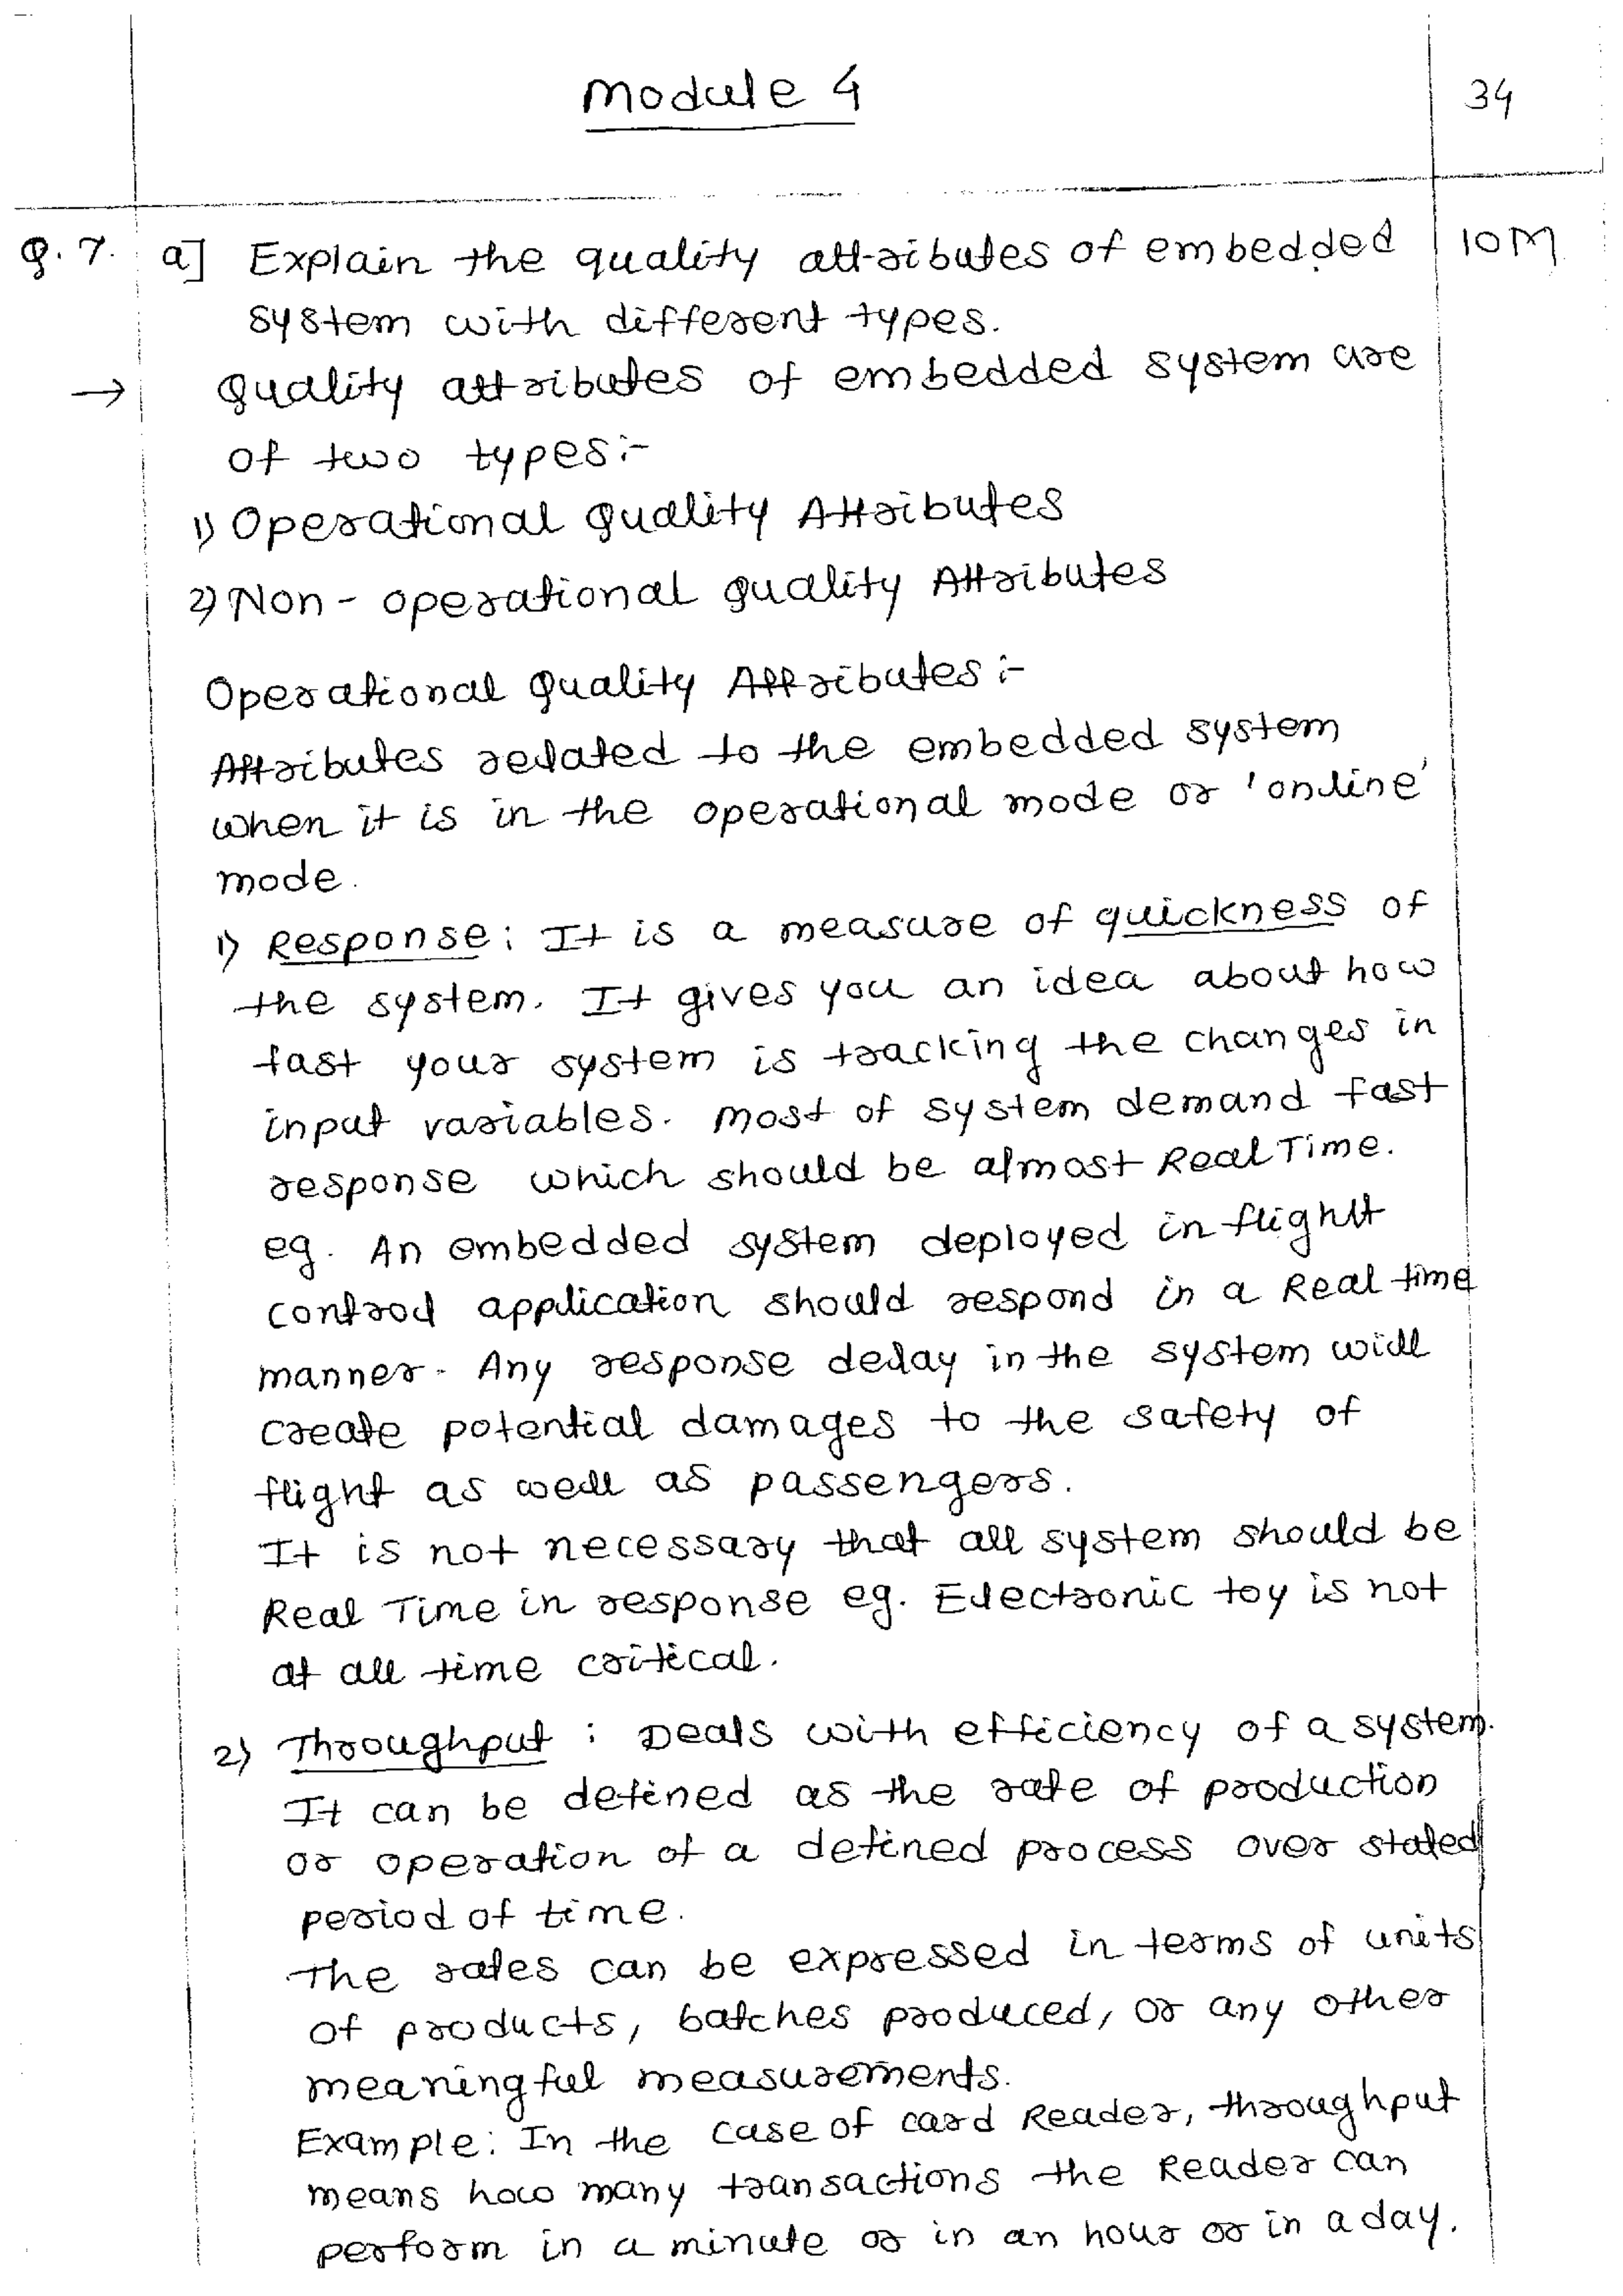 Module 4
34
Q.7. a] Explain the quality attributes of embedded 10M
system with different types.
→ Quality attributes of embedded system are
of two types:-
1) Operational Quality Attributes
2) Non - operational quality Attributes
Operational Quality Attributes :-
Attributes related to the embedded system
when it is in the operational mode or 'online'
mode.
1) Response : It is a measure of quickness of
the system. It gives you an idea about how
fast your system is tracking the changes in
input variables. Most of system demand fast
response which should be almost Real Time.
eg. An embedded system deployed in flight
control application should respond in a Real time
manner. Any response delay in the system will
create potential damages to the safety of
flight as well as passengers.
It is not necessary that all system should be
Real Time in response eg. Electronic toy is not
at all time critical.
2) Throughput : Deals with efficiency of a system.
It can be defined as the rate of production
or operation of a defined process over stated
period of time.
The rates can be expressed in terms of units
of products, batches produced, or any other
meaningful measurements.
Example: In the case of card Reader, throughput
means how many transactions the Reader can
perform in a minute or in an hour or in a day.